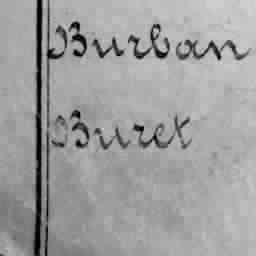 Burban
Buret